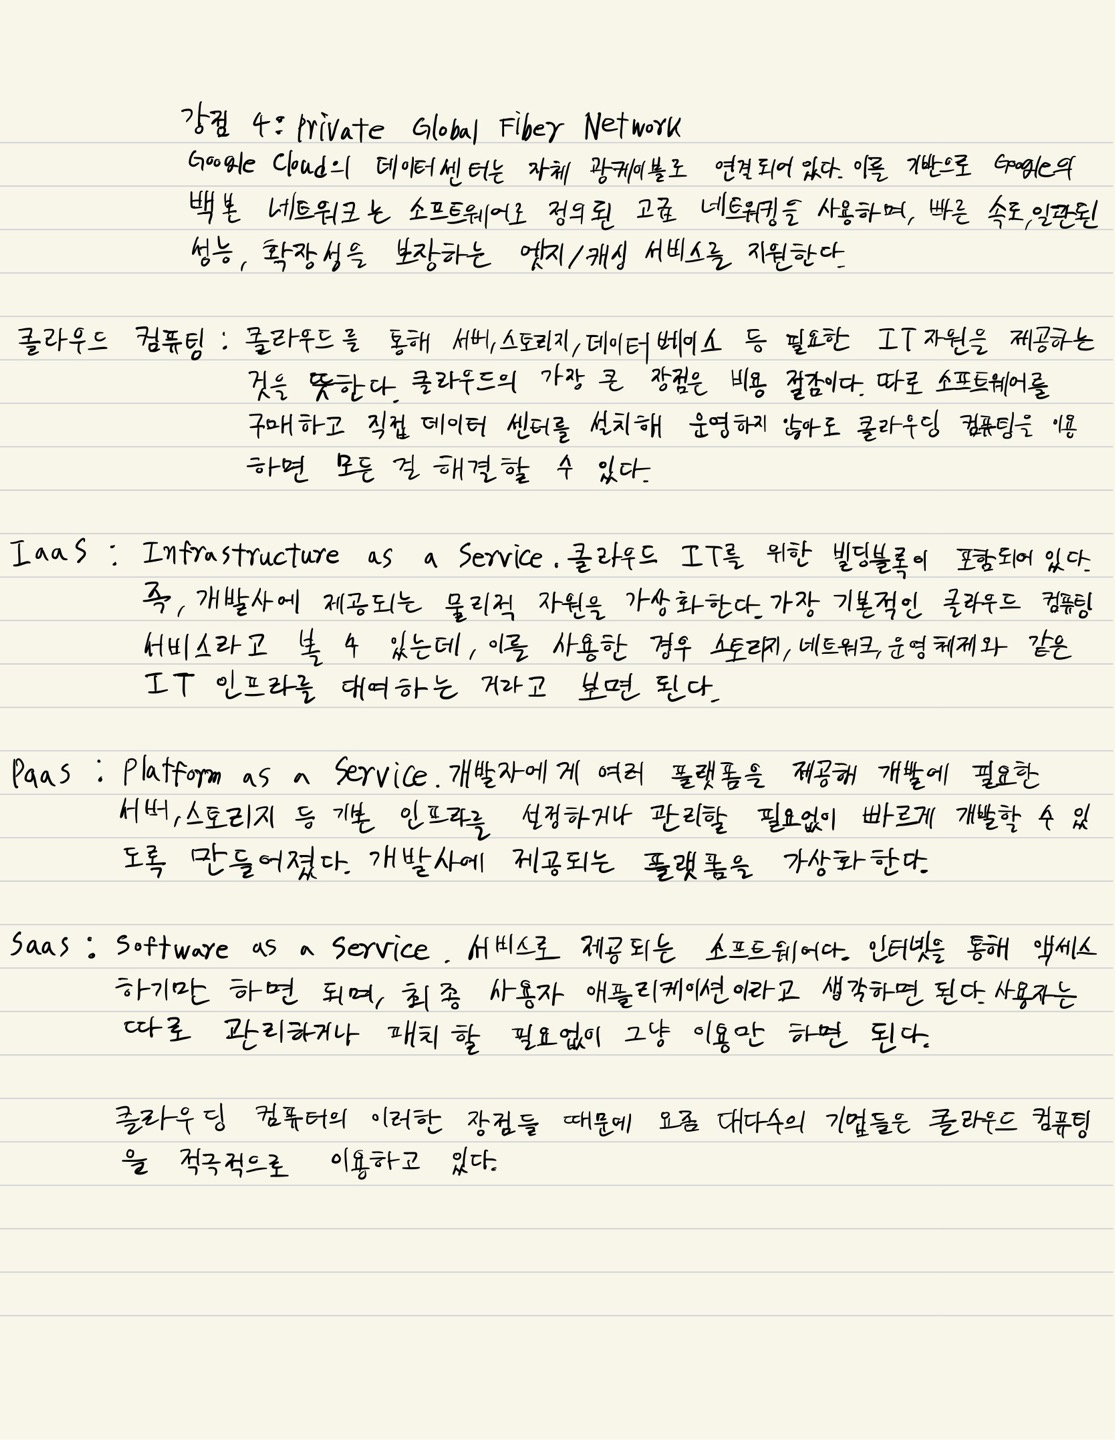 강점 4: Private Global Fiber Network
Google Cloud의 데이터센터는 자체 광케이블로 연결되어 있다. 이를 기반으로 Google의
백본 네트워크는 소프트웨어로 정의된 고급 네트워킹을 사용하며, 빠른 속도, 일관된
성능, 확장성을 보장하는 엣지/캐싱 서비스를 지원한다.
클라우드 컴퓨팅 : 클라우드를 통해 서버, 스토리지, 데이터베이스 등 필요한 IT 자원을 제공하는
것을 뜻한다. 클라우드의 가장 큰 장점은 비용 절감이다. 따로 소프트웨어를
구매하고 직접 데이터 센터를 설치해 운영하지 않아도 클라우딩 컴퓨팅을 이용
하면 모든 걸 해결할 수 있다.
IaaS : Infrastructure as a Service. 클라우드 IT를 위한 빌딩블록이 포함되어 있다.
즉, 개발사에 제공되는 물리적 자원을 가상화한다. 가장 기본적인 클라우드 컴퓨팅
서비스라고 볼 수 있는데, 이를 사용한 경우 스토리지, 네트워크, 운영체제와 같은
IT 인프라를 대여하는 거라고 보면 된다.
PaaS : Platform as a Service. 개발자에게 여러 플랫폼을 제공해 개발에 필요한
서버, 스토리지 등 기본 인프라를 설정하거나 관리할 필요없이 빠르게 개발할 수 있
도록 만들어졌다. 개발사에 제공되는 플랫폼을 가상화한다.
SaaS : Software as a Service. 서비스로 제공되는 소프트웨어다. 인터넷을 통해 액세스
하기만 하면 되며, 최종 사용자 애플리케이션이라고 생각하면 된다. 사용자는
따로 관리하거나 패치할 필요없이 그냥 이용만 하면 된다.
클라우딩 컴퓨터의 이러한 장점들 때문에 요즘 대다수의 기업들은 클라우드 컴퓨팅
을 적극적으로 이용하고 있다.